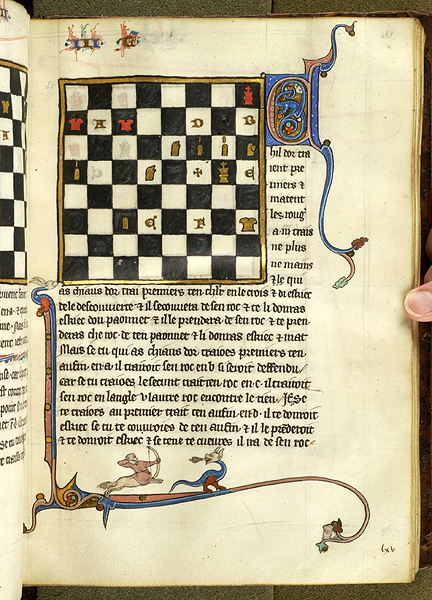 A D B
C E
C F
hil dor tra
ient pre
miers &
matent
les roug'
a .iii. trais
ne plus
ne mains
& le qui
as chiaus dor. trai premiers ten chlr en le crois & di eskiec
de le descouverte & il se couverra de sen roc & te li donras
eskiec dou paonniet & il le prendera de sen roc & te pren
deras che roc de ten paonniet & li donras eskiec & mat
Mais se tu qui as chiaus dor traioies premiers ten
aufin en .a. il trairoit sen roc en .b. si seroit deffendu
car se tu traioies le secunt trait ten roc en .c. il trairoit
sen roc en langle u lautre roc encontre le tien. Et se
te traioies au premier trait ten aufin en .d. il te donroit
eskiec se tu te couvroies de ten aufin & il le prenderoit
& te donroit eskiec & se tu te cueuvres il ira de sen roc
lxv